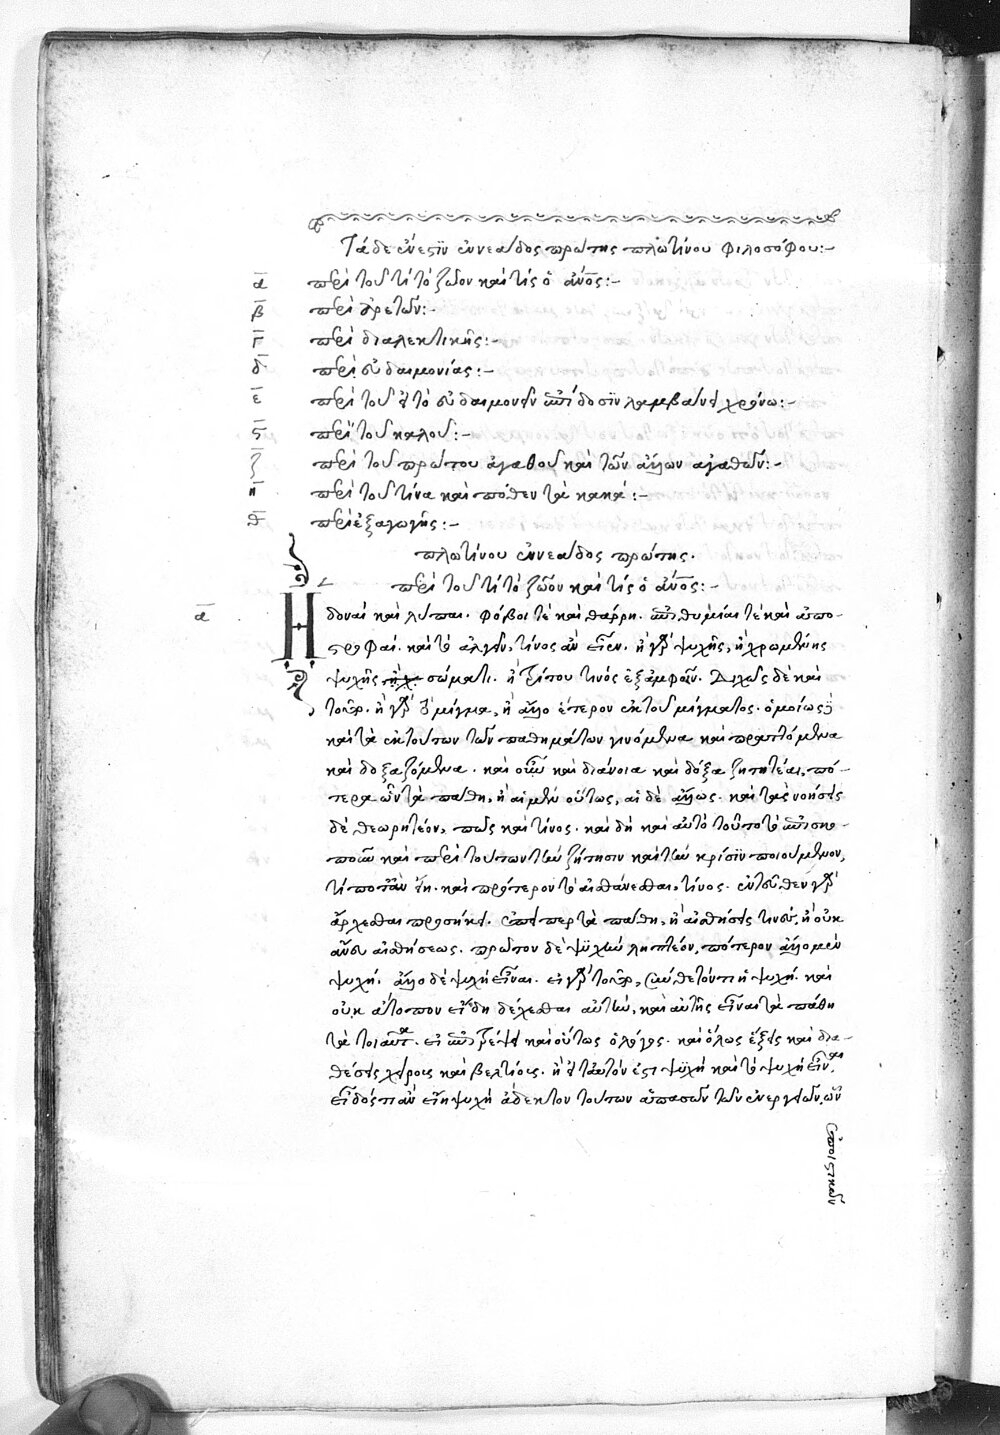 Τάδε ἔνεστιν ἐννεάδος πρώτης πλωτίνου φιλοσόφου:-
α περὶ τοῦ τί τὸ ζῶον καὶ τίς ὁ ἄνος:-
β περὶ ἀρετῶν:-
γ περὶ διαλεκτικῆς:-
δ περὶ εὐδαιμονίας:-
ε περὶ τοῦ εἰ τὸ εὐδαιμονεῖν ἐπίδοσιν λαμβάνει χρόνω:-
ς περὶ τοῦ καλοῦ:-
ζ περὶ τοῦ πρώτου ἀγαθοῦ καὶ τῶν ἄλλων ἀγαθῶν:-
η περὶ τοῦ τίνα καὶ πόθεν τὰ κακά:-
θ περὶ ἐξαγωγῆς:-
πλωτίνου ἐννεάδος πρώτης.
περὶ τοῦ τί τὸ ζῶον καὶ τίς ὁ ἄνος:-
α Ἡδοναὶ καὶ λυπαι. φόβοι τὲ καὶ θάρρη. ἐπιθυμίαι τὲ καὶ ἀπο-
στροφαί. καὶ τὸ ἀλγεῖν, τίνος ἂν εἶεν. ἢ γὰρ ψυχῆς, ἢ χρωμένης
ψυχῆς σώματι. ἢ τρίτου τινὸς ἐξ ἀμφοῖν. Διχῶς δὲ καὶ
τοῦτο. ἢ γὰρ τὸ μίγμα, ἢ ἄλλο ἕτερον ἐκ τοῦ μίγματος. ὁμοίως δὲ
καὶ τὰ ἐκ τούτων τῶν παθημάτων γινόμενα καὶ πραττόμενα
καὶ δοξαζόμενα. καὶ οὖν καὶ διάνοια καὶ δόξα ζητητέαι, πό-
τερα ὧν τὰ πάθη, ἢ αἱ μὲν οὕτως, αἱ δὲ ἄλλως. καὶ τὰς νοήσεις
δὲ θεωρητέον, πῶς καὶ τίνος. καὶ δὴ καὶ αὐτὸ τοῦτο τὸ ἐπισκο-
ποῦν καὶ περὶ τούτων τὴν ζήτησιν καὶ τὴν κρίσιν ποιούμενον,
τί ποτ᾽ ἂν εἴη. καὶ πρότερον τὸ αἰσθάνεσθαι, τίνος. ἐντεῦθεν γὰρ
ἄρχεσθαι προσήκει. ἐπείπερ τὰ πάθη, ἢ αἰσθήσεις τινές, ἢ οὐκ
ἄνευ αἰσθήσεως. πρῶτον δὲ ψυχὴν ληπτέον, πότερον ἄλλο μὲν
ψυχή, ἄλλο δὲ ψυχῆ εἶναι. εἰ γὰρ τοῦτο, σύνθετόν τι ἡ ψυχή. καὶ
οὐκ ἄτοπον εἴδη δέχεσθαι αὐτὴν, καὶ αὐτῆς εἶναι τὰ πάθη
τὰ τοιαῦτα. εἰ ἐπιτρέψει καὶ οὕτως ὁ λόγος. καὶ ὅλως ἕξεις καὶ δια-
θέσεις χείρους καὶ βελτίους. ἢ εἰ ταὐτόν ἐστι ψυχὴ καὶ τὸ ψυχῆ εἶναι,
εἶδός τι ἂν εἴη ψυχὴ ἄδεκτον τούτων ἁπασῶν τῶν ἐνεργειῶν, ὧν
ἐποιστικὸν